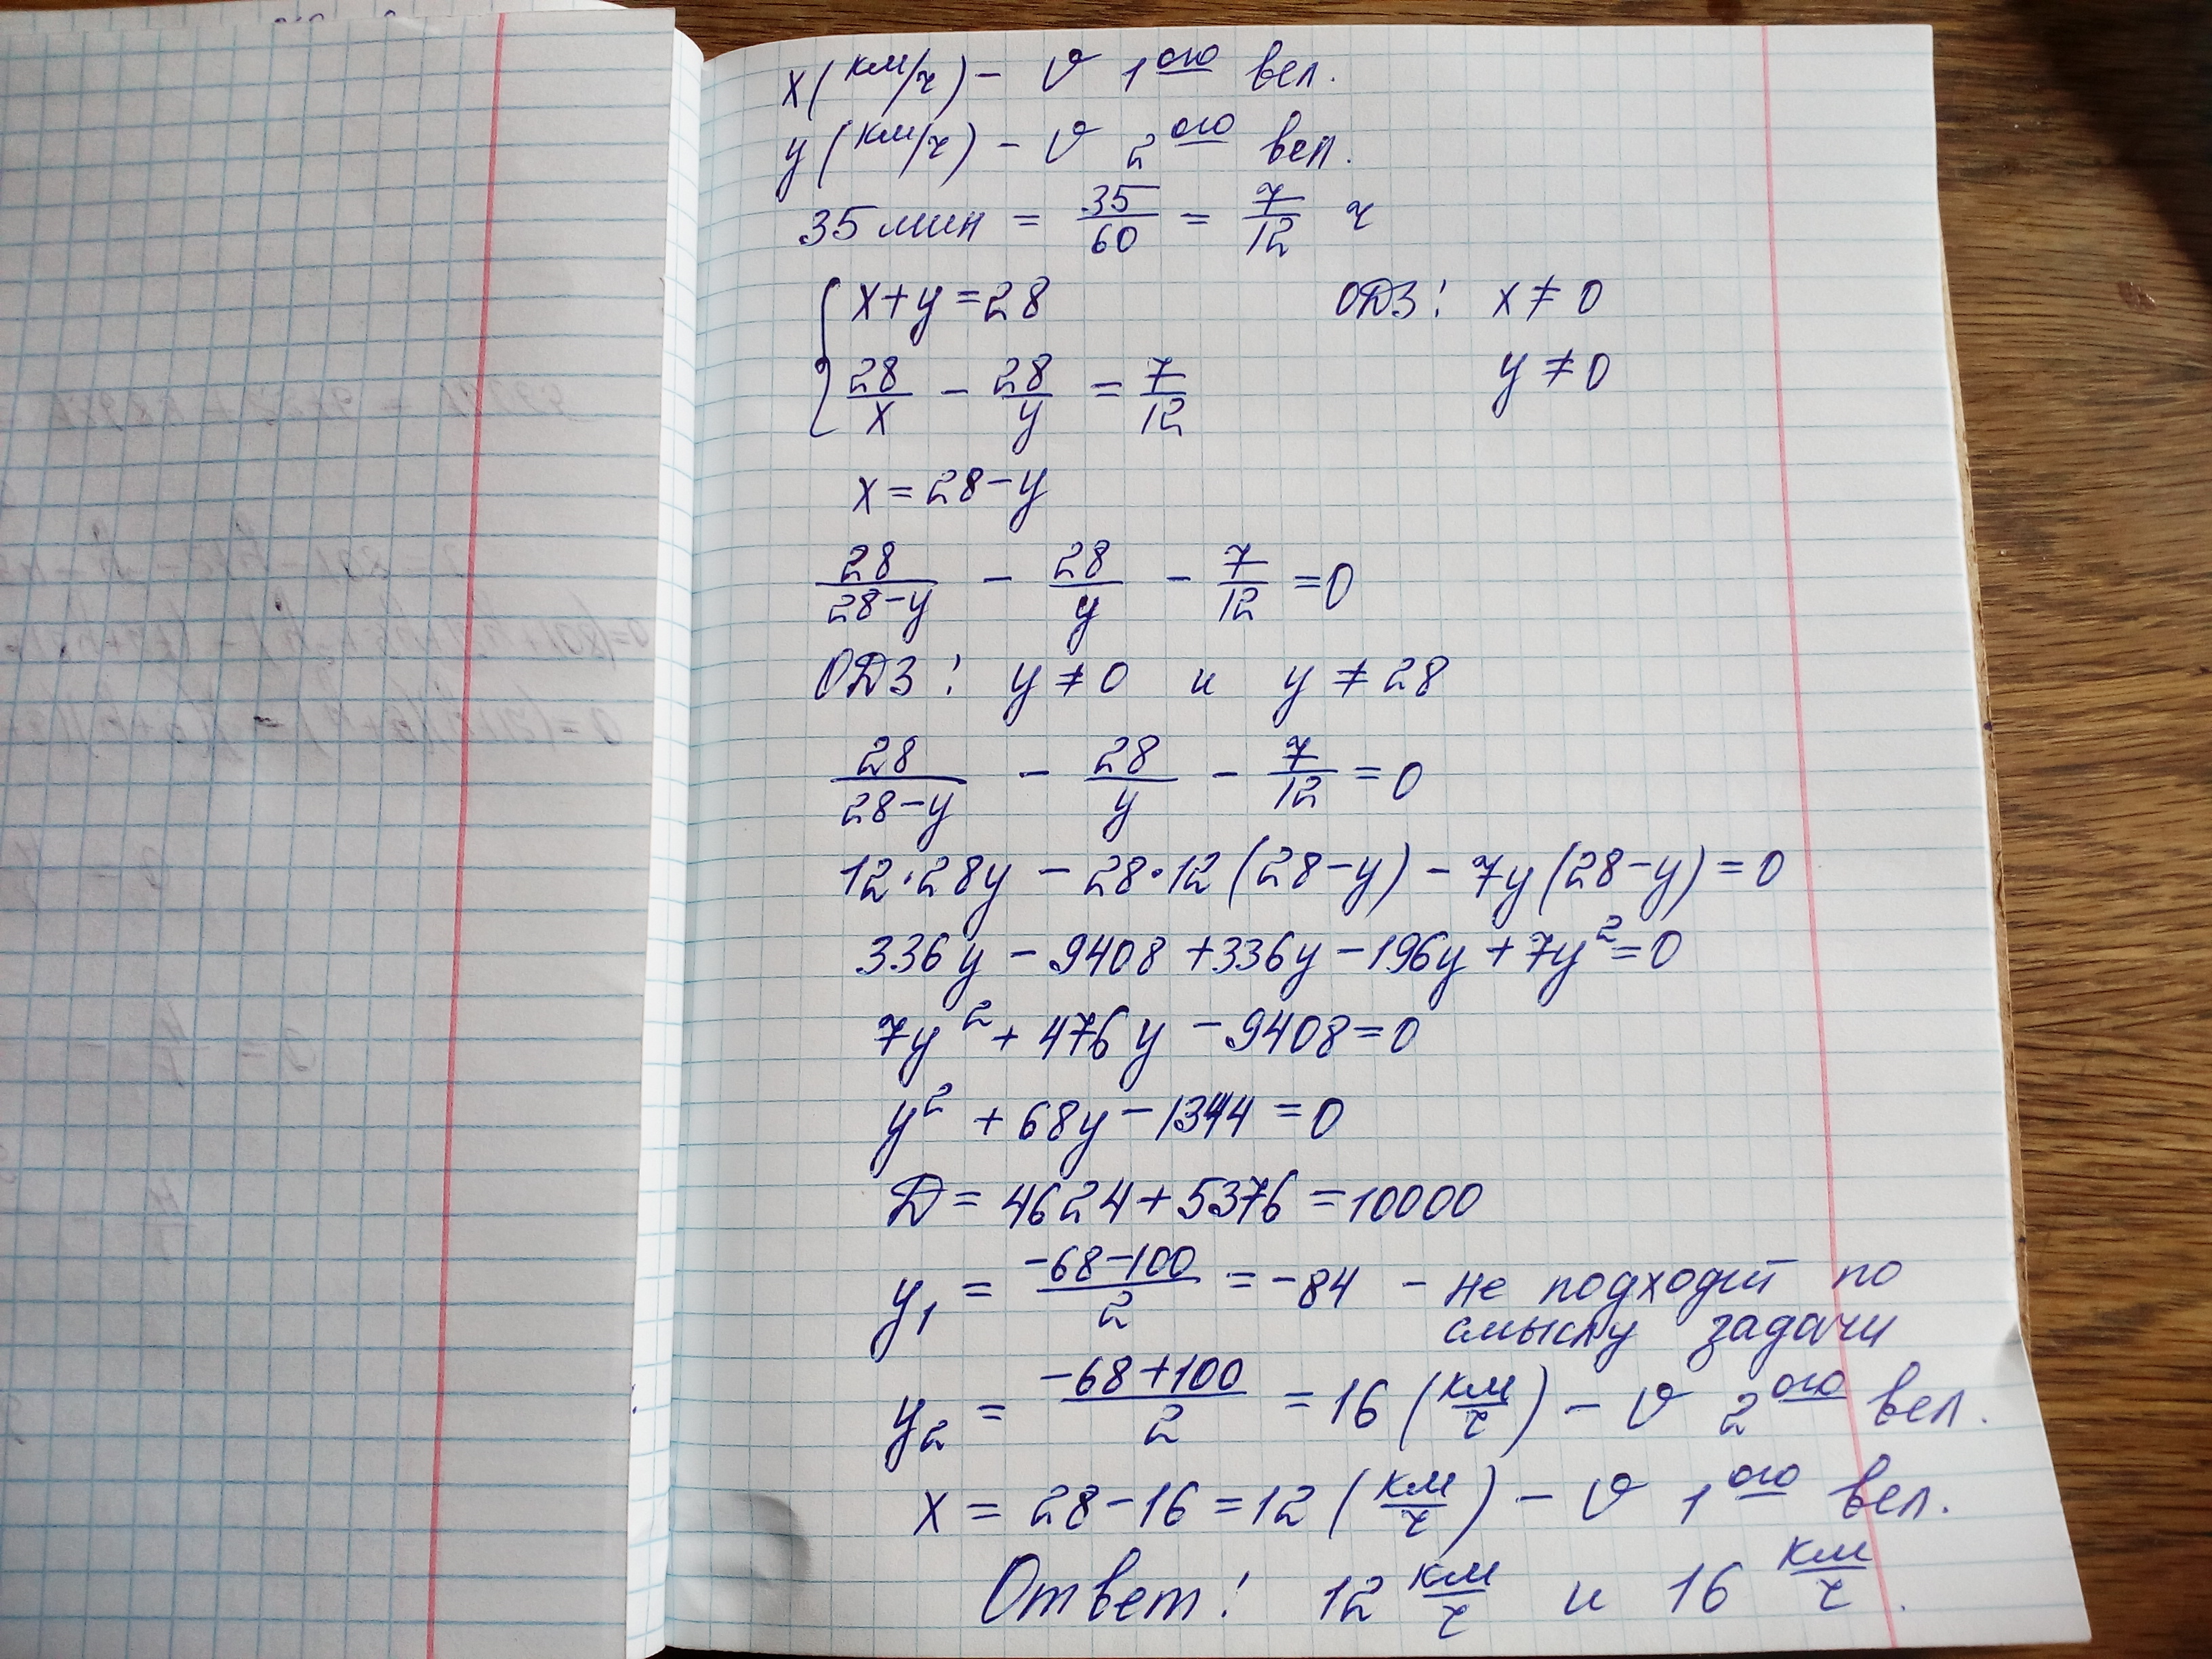 x (км/ч) - v 1ого вел.
y (км/ч) - v 2ого вел.
35 мин = 35/60 = 7/12 ч
{ x + y = 28 ОДЗ: x ≠ 0
28/x - 28/y = 7/12 y ≠ 0
x = 28 - y
28/(28-y) - 28/y - 7/12 = 0
ОДЗ: y ≠ 0 и y ≠ 28
28/(28-y) - 28/y - 7/12 = 0
12·28y - 28·12(28-y) - 7y(28-y) = 0
336y - 9408 + 336y - 196y + 7y² = 0
7y² + 476y - 9408 = 0
y² + 68y - 1344 = 0
D = 4624 + 5376 = 10000
y₁ = (-68-100)/2 = -84 - не подходит по
смыслу задачи
y₂ = (-68+100)/2 = 16 (км/ч) - v 2ого вел.
x = 28 - 16 = 12 (км/ч) - v 1ого вел.
Ответ: 12 км/ч и 16 км/ч.